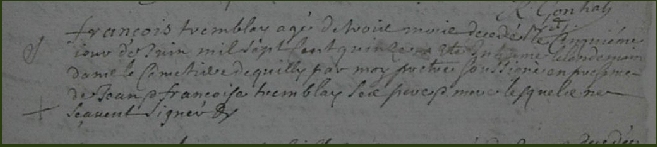 R. Gontal
françois tremblay agé de trois mois decedé le cinquième
jour de Juin mil sept cent quinze a esté Inhumé le lendemain
dans le Cimetiere de quilly par moy pretre soussigné en presence
de Jean p françoise tremblay ses pere p mere lesquels ne
sçavent signer